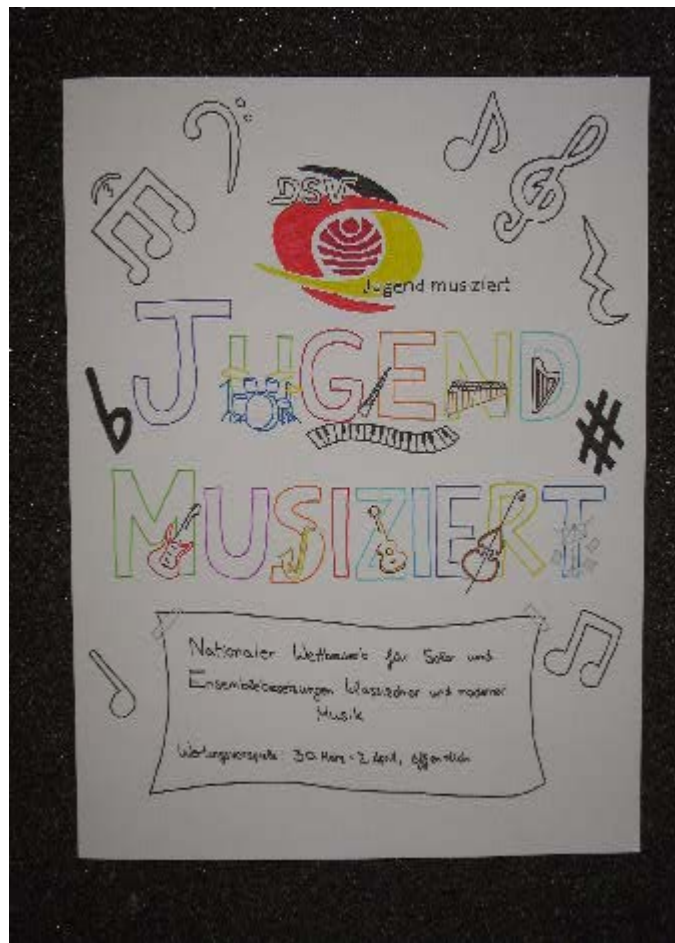 DSV
Jugend musiziert
JUGEND
MUSIZIERT
Nationaler Wettbewerb für Solo und
Ensemblebesetzungen klassischer und moderner
Musik
Wertungsvorspiele: 30. März - 2. April, öffentlich